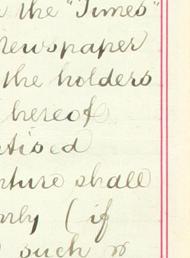 the "Times"
Newspaper
the holders
hereof
tised
nture shall
only ( if
such